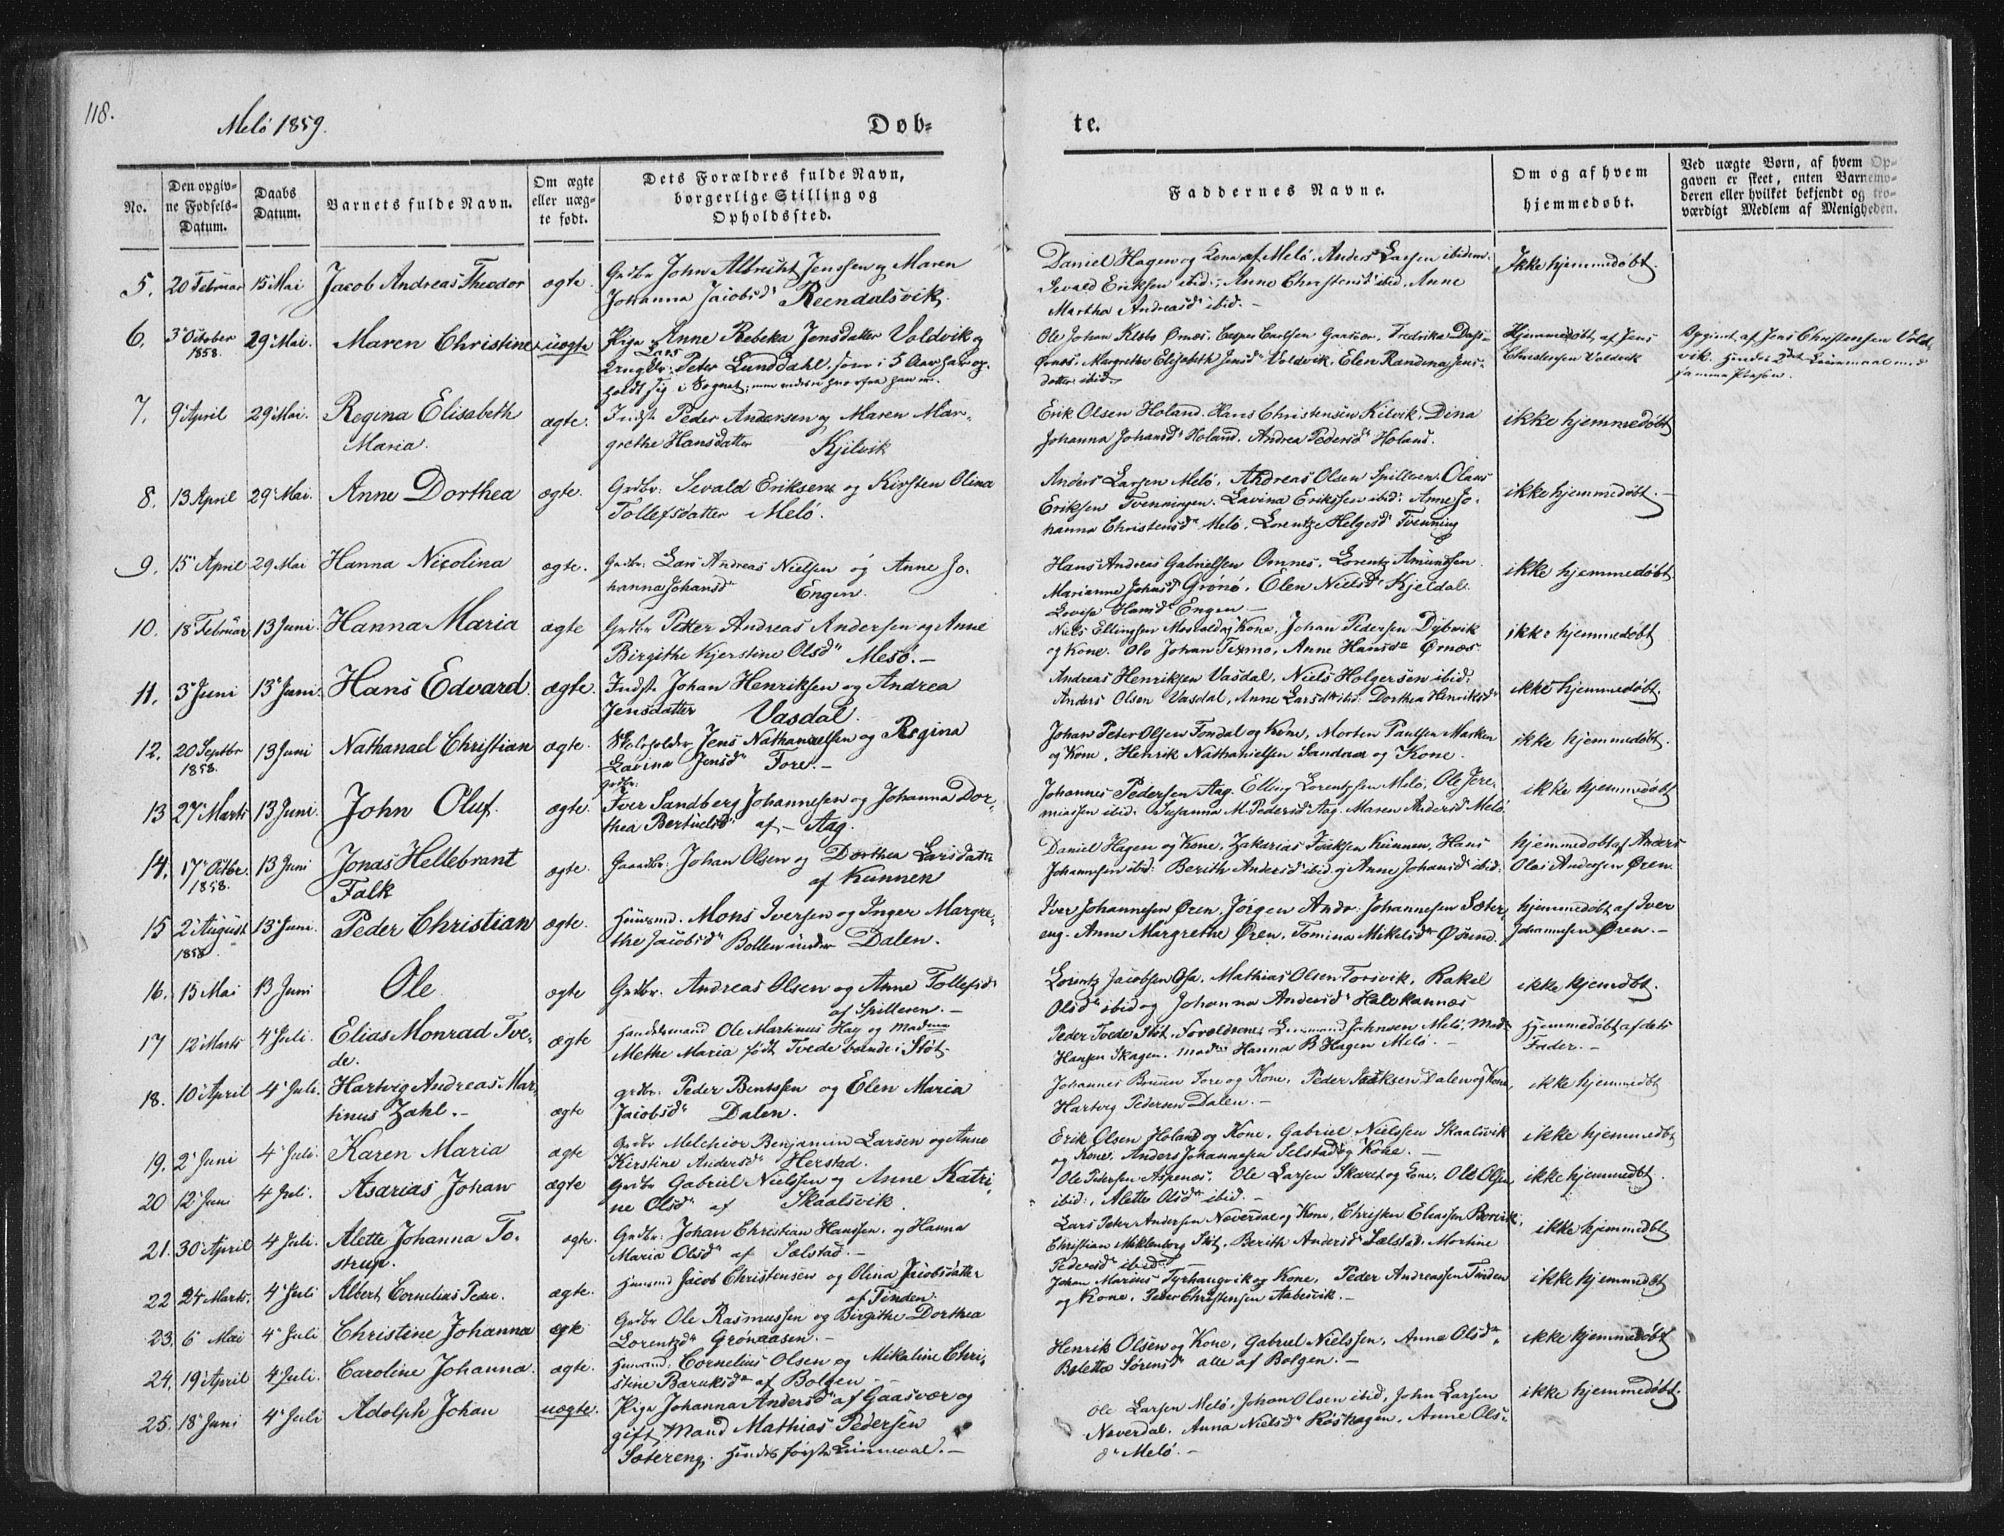 118.
Melö 1859.
Døb-
te.
No.
Den opgiv-
ne Fødsels-
Datum.
Daabs
Datum.
Barnets fulde Navn.
Om ægte
eller uæg-
te født.
Dets Forældres fulde Navn,
borgerlige Stilling og
Opholdssted.
Faddernes Navne.
Om og af hvem
hjemmedøbt.
Ved uægte Børn, af hvem Op-
gaven er skeet, enten Barnemo-
deren eller hvilket bekjendt og tro-
værdigt Medlem af Menigheden.
5. 20 Februar 15 Mai Jacob Andreas Theodor ægte. Grdbr John Albrecht Jenssen og Maren
Johanna Jacobsdr Reendalsvik.
Daniel Hagen og Kone af Melö. Anders Larsen ibidem.
Sevald Eriksen ibid:, Anne Christensdr ibid, Anne
Martha Andreasdr ibid. –
Ikke hjemmedøbt.
6. 3 October 29 Mai. Maren Christine uægte Pige Anne Rebeka Jensdatter Voldvik og
1858.
Ungkr: Lars Peter Lunddahl, som i 5 Aar har op-
holdt sig i Sognet,
Ole Johan Olsen Ørnæs. Casper Carlsen Gaasvær.
Ørnæs. Margrethe Elisabeth Jensdr Voldvik, Elen Randina Jens-
datter ibid.
Hjemmedøbt af Jens
Christensen Voldvik
Opgivet af Jens Christensen Vold-
vik. Hendes 2det Leiermaal med
samme Person.
7. 9 April 29 Mai. Regina Elisabeth ægte. Indst Peder Andersen og Maren Mar-
Maria. grethe Hansdatter Kjilvik
Erik Olsen Holand. Hans Christensen Kilvik, Dina
Johanna Johansdr Holand. Andrea Pedersdr Holand.
ikke hjemmedøbt
8. 13 April 29 Mai. Anne Dorthea ægte. Grdbr: Sevald Eriksen og Kirsten Olina
Tollefsdatter Melö.
Anders Larsen Melö, Andreas Olsen Spilderen. Olaus
Eriksen Tvenningen. Lavina Eriksen ibid: Anne Jo-
hanna Christensdr Melö, Lorentze Helgesdr Tvenning
ikke hjemmedøbt. –
9. 15 April 29 Mai Hanna Nicolina ægte. Grdbr: Lars Andreas Nielsen og Anne Jo-
hanna Johansdr Engen.
Hans Andreas Gabrielsen Omnes, Lorentz Amundsen
Marianne Johnsdr Grönö, Elen Nielsdr Kjeldal.
Lovise Hansdr Engen –
ikke hjemmedøbt
10. 18 Februar 13 Juni. Hanna Maria ægte Grdbr Peter Andreas Andersen og Anne
Birgithe Kjerstine Olsdr Mesö. –
Niels Ellingsen Mosvold og Kone, Johan Pedersen Dybvik
og Kone. Ole Johan Texmo, Anne Hansdr Ørnæs
ikke hjemmedøbt
11. 3 Juni 13 Juni. Hans Edvard ægte. Indst Johan Henriksen og Andrea
Jensdatter Vasdal.
Andreas Henriksen Vasdal, Niels Holgersen ibid:
Anders Olsen Vasdal, Anne Larsdr ibid: Dorthea Henriksdr
ikke hjemmedøbt.
12. 20 Septbr 13 Juni Nathanael Christian ægte. Jens Nathanaelsen og Regina
1858. Lavina Jensdr Fore. –
Johan Peter Olsen Fondal og Kone, Morten Paulsen Marken
og Kone, Henrik Nathanielsen Sandaa og Kone.
ikke hjemmedøbt.
13 27 Marts 13 Juni. John Oluf. ægte. Grdbr: Iver Sandberg Johannesen og Johanna Dor-
thea Bertuelsdr af – Aag.
Johannes Pedersen Aag. Elling Lorentzsen Melö, Ole Jere-
miassen ibid. Susanna M. Pedersdr Aag, Maren Andersdr Melö.
ikke hjemmedøbt
14. 17 Octbr. 13 Juni Jonas Hellebrant ægte. Gaardbr: Johan Olsen og Dorthea Larsdatter
1858. Falk af Kunnen
Daniel Hagen og Kone, Zakarias Isaksen Kunnen, Hans
Johannesen ibid: Berith Andersdr ibid og Anne Johansdr ibid:
hjemmedøbt af Anders
Olai Andersen Øren.
15 2 August 13 Juni. Peder Christian ægte. Huusmd. Mons Iversen og Inger Margre-
1858. the Jacobsdr Bollen under Dalen.
Iver Johannesen Øren, Jörgen Andr. Johannesen Sæter-
eng. Anne Margrethe Øren, Tomina Mikelsdr Øsund.
hjemmedøbt af Iver
Johannesen Øren. –
16. 15 Mai 13 Juni Ole ægte Grdbr. Andreas Olsen og Anne Tollefsdr
af Spilderen. –
Lorentz Jacobsen Osa, Mathias Olsen Torsvik, Rakel
Olsdr ibid og Johanna Andersdr Halekannæs
ikke hjemdøbt.
17 12 Marts 4 Juli. Elias Monrad Tve- ægte Handelsmand Ole Martinus Hay og Madme
de. Methe Maria født Tvede boende i Stöt.
Peder Tvede Stöt, Lensmand Johnsen Melö, Mad.
Hansen Skagen. Mad. Hanna B. Hagen Melö. –
Hjemmedøbt af dets
Fader. –
18. 10 April 4 Juli. Hartvig Andreas Mar- ægte grdbr. Peder Bentssen og Elen Maria
tinus Zahl. – Jacobsdr Dalen.
Johannes Bruun Fore og Kone, Peder Isaksen Dalen og Kone,
Hartvig Pedersen Dalen. –
ikke hjemmedøbt
19. 2 Juni 4 Juli. Karen Maria ægte Grdbr Melchior Benjamin Larsen og Anne
Kirstine Andersdr Herstad.
Erik Olsen Holand og Kone, Gabriel Nielssen Skaalsvik
og Kone. Anders Johannesen Selstad og Kone. –
ikke hjemmedøbt
20 12 Juni 4 Juli. Asarias Johan ægte Grdbr Gabriel Nielssen og Anne Katri-
ne Olsdr af Skaalsvik.
Ole Pedersen Aspenæs. Ole Larsen Skaret og Kone, Ole Olsen
ibid:, Alette Olsdr ibid. –
ikke hjemmedøbt.
21. 30 April 4 Juli. Alette Johanna To- ægte. Grdbr: Johan Christian Hanssen. og Hanna
strup. Maria Olsdr af Sælstad. –
Lars Peter Andersen Neverdal og Kone, Christen Eliassen Borvik,
Christian Miklenborg Stöt, Berith Andersdr Sælstad, Mortine
Pedersdr ibid:
ikke hjemmedøbt
22 24 Marts. 4 Juli Albert Cornelius Peder. ægte. Huusmd Jacob Christensen og Olina Jacobsdatter
af Tinden.
Johan Marius Tyrhaugvik og Kone, Peder Andreassen Tinden
og Kone. Peter Christensen Aabesvik. –
ikke hjemmedøbt
23. 6 Mai 4 Juli Christine Johanna ægte Grdbr Ole Rasmussen og Birgithe Dorthea
Lorentzdr Grönaasen. –
Henrik Olsen og Kone, Gabriel Nielssen, Anne Olsdr,
Bolette Sörensdr alle af Bolgen. –
ikke hjemmedøbt
24. 19 April 4 Juli. Caroline Johanna. ægte. Huusmd: Cornelius Olsen og Mikaline Chri-
stine Baruksdr af Bolgen –
ikke hjemmedøbt.
25. 18 Juni 4 Juli Adolph Johan uægte. Pige Johanna Andersdr af Gaasvær og
gift Mand Mathias Pedersen
Sætereng. Hendes første Leiermaal. –
Ole Larsen Melö, Johan Olsen ibid, John Larsen
Neverdal. Anna Nielsdr Röshagen, Anne Ols-
dr Melö. –